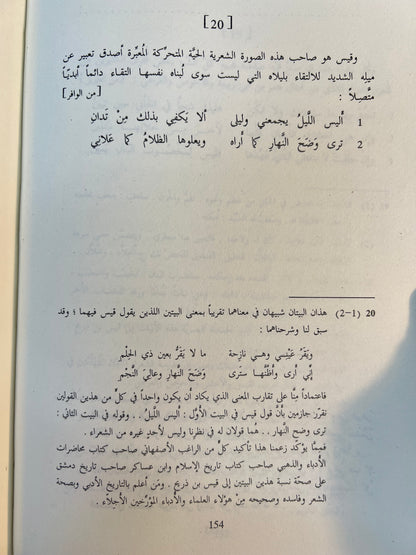 [20]
وقيس هو صاحب هذه الصورة الشعرية الحيّة المتحركة المُعبّرة أصدق تعبير عن
ميله الشديد للالتقاء بليلاه التي ليست سوى لُبناه نفسها التقاء دائماً أبديّاً
متّصِلاً :
[من الوافر]
1 أليس اللَّيلُ يجمعني وليلى ألا يَكفي بذلك مِنْ تَدانِ
2 ترى وَضَحَ النَّهارِ كما أراه ويعلوها الظلامُ كما عَلاني
20 (1-2) هذان البيتان شبيهان في معناهما تقريباً بمعنى البيتين اللذين يقول قيس فيهما ؛ وقد
سبق لنا وشرحناهما :
ويَقَرُ عَيْنَي وهي نازحة ما لا يَقَرُّ بعينِ ذي الحِلْمِ
إنّي أرى وأظُنُّها سترى وَضَحَ النَّهارِ وعاليَ النَّجْمِ
فاعتماداً منّا على تقارب المعنى الذي يكاد أن يكون واحداً في كلّ من هذين القولين
نقرّر جازمين بأنَّ قول قيس في البيت الأوَّل : أليس اللَّيلُ.. وقوله في البيت الثاني :
ترى وضح النَّهار .. هما قولان له في نظرنا وليس لأحدٍ غيره من الشعراء .
فممّا يؤكّد زعمنا هذا تأكيد كلٍّ من الراغب الأصفهاني صاحب كتاب محاضرات
الأدباء والذهبي صاحب كتاب تاريخ الإسلام وابن عساكر صاحب تاريخ دمشق
على صحّة نسبة هذين البيتين إلى قيس بن ذريح . ومَن أعلم بالتاريخ الأدبي وبصحة
الشعر وفاسده وصحيحه مِنْ هؤلاء العلماء والأُدباء المؤرّخين الأجلاّء .
154